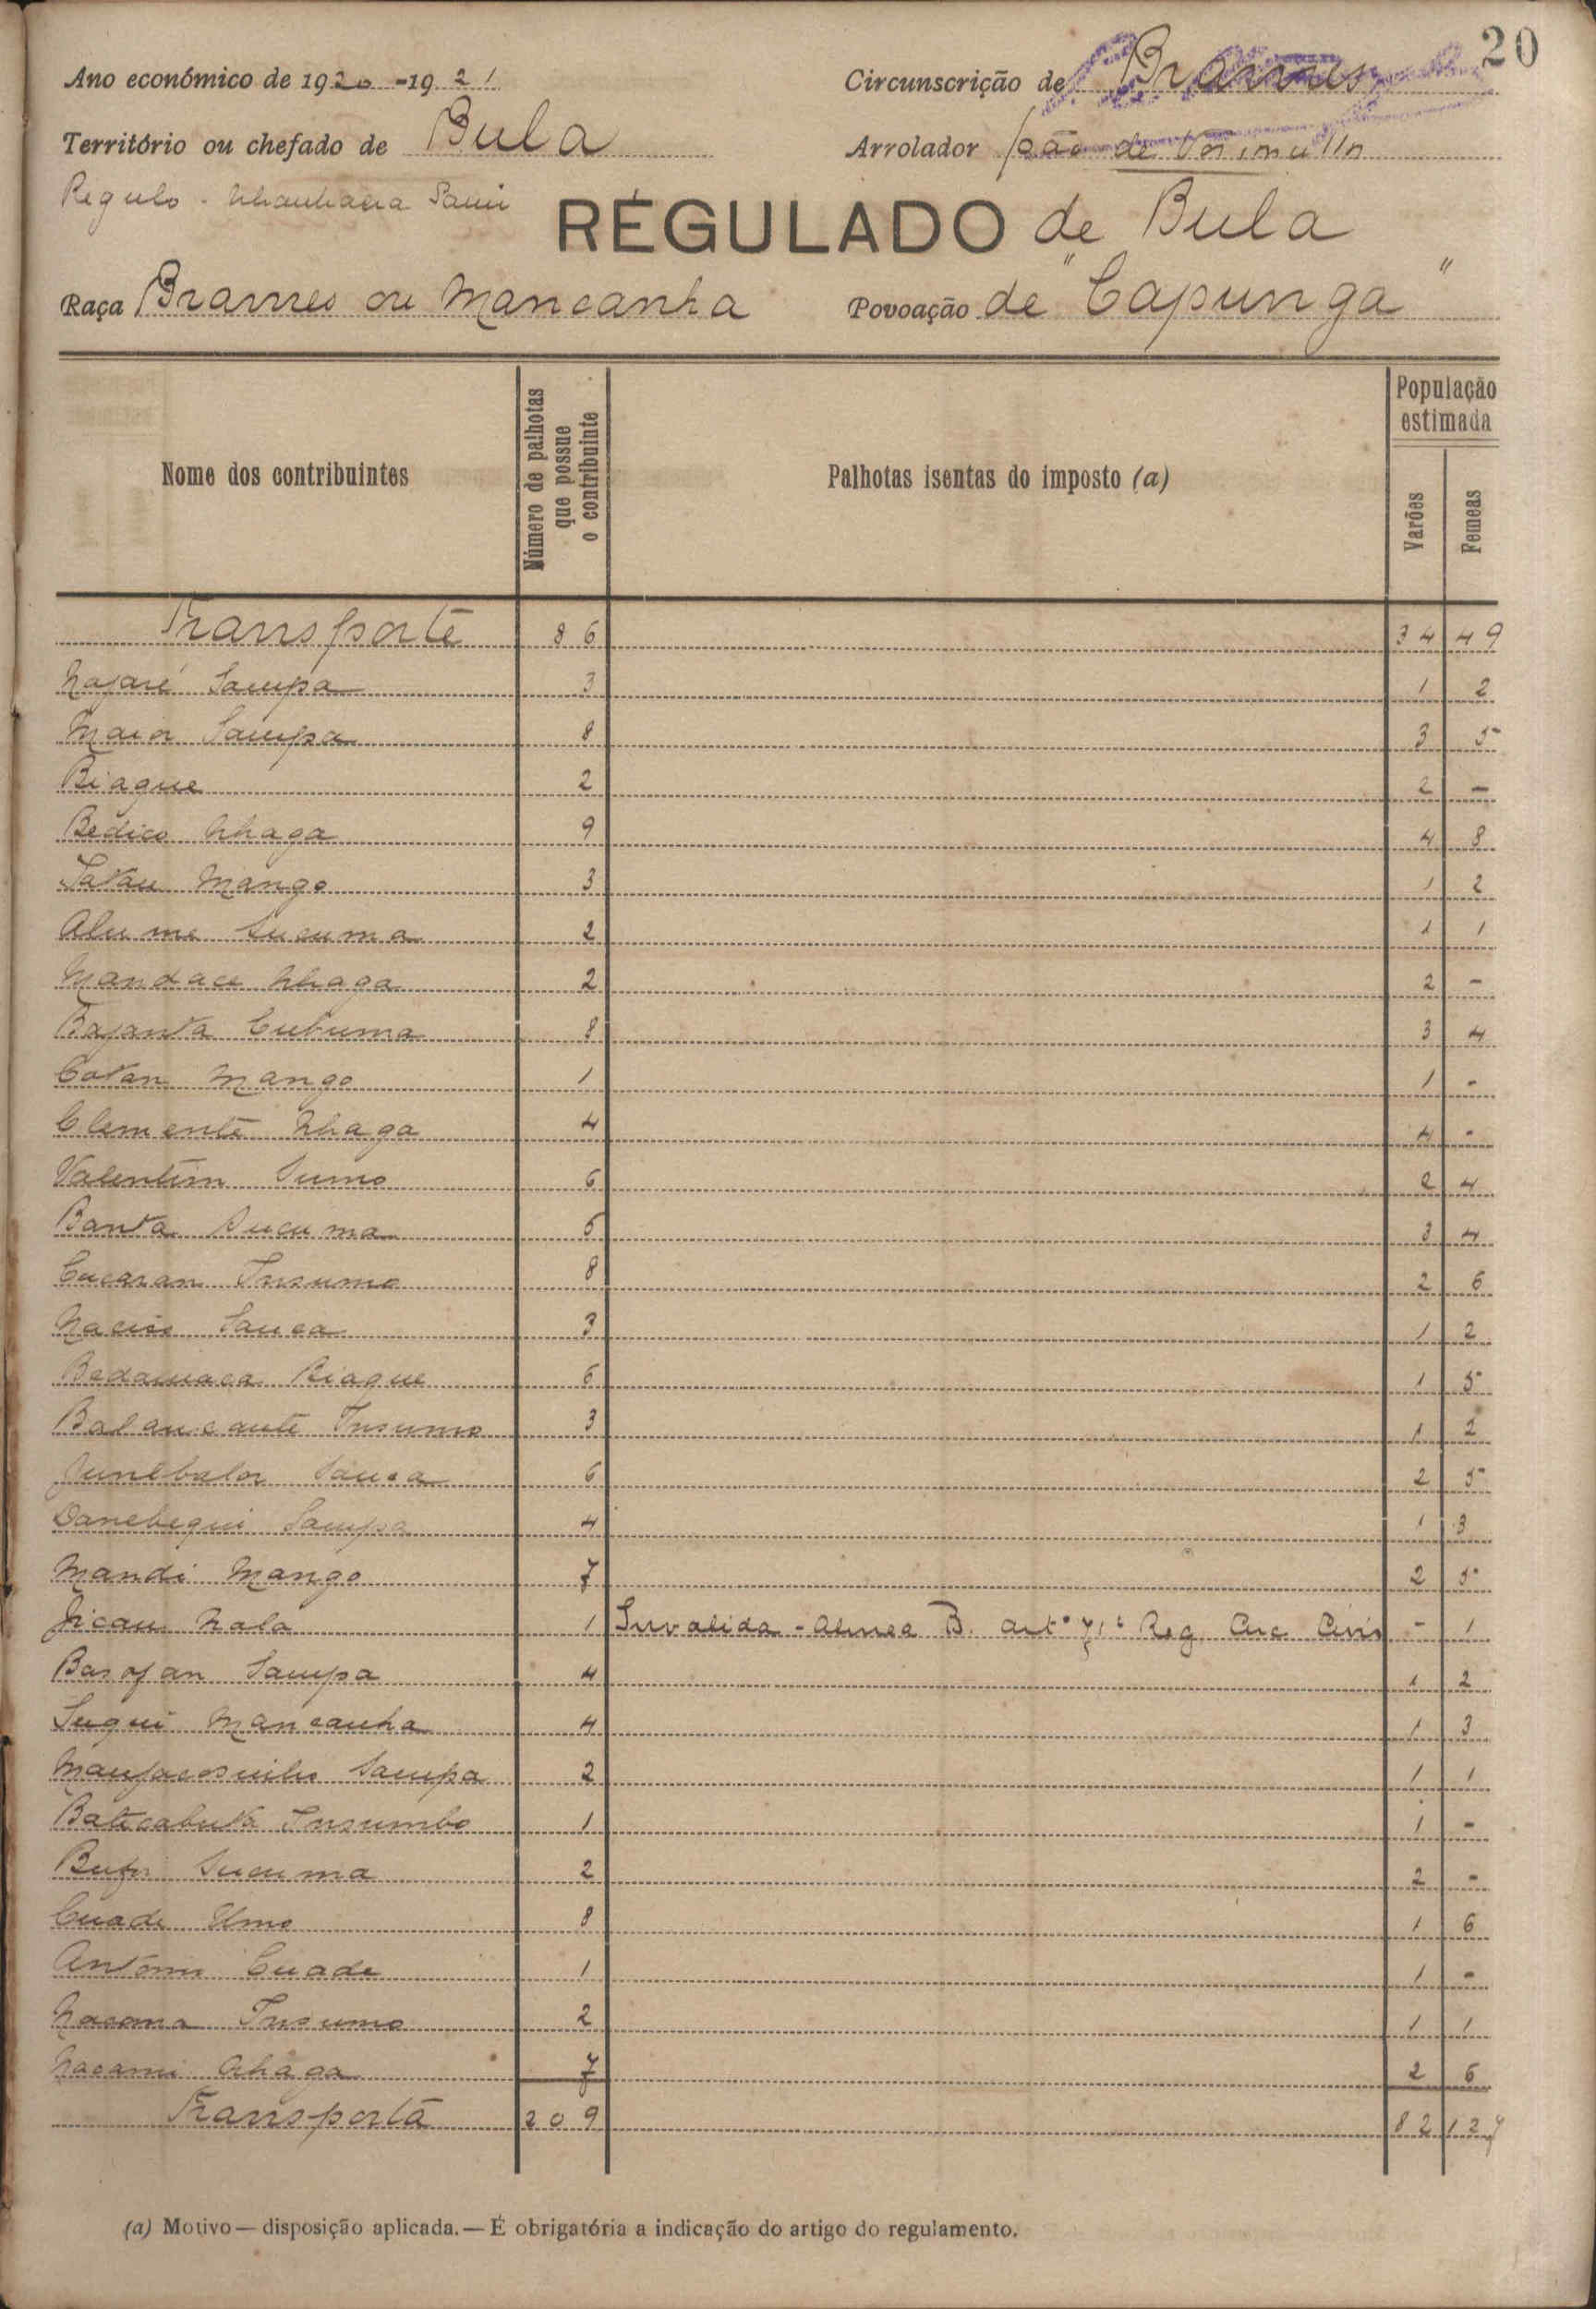 20
Ano económico de 1920-1921 Circunscrição de Brames
Território ou chefado de Bula Arrolador João de
Regulo - Nhanhaca Sami
RÉGULADO de Bula
Raça Brames ou Mancanha Povoação de "Capunga"
Nome dos contribuintes Número de palhotas que possue o contribuinte Palhotas isentas do imposto (a) População estimada Varões Femeas
Transporte 86 34 49
Najaré Sampa 3 1 2
Maia Sampa 8 3 5
Biague 2 2 -
Bedico Nhaga 9 4 8
Tatau Mango 3 1 2
Alume Sucuma 2 1 1
Mandace Nhaga 2 2 -
Bajanta Cubuma 8 3 4
Catan Mango 1 1 -
Clemente Nhaga 4 4 -
Valentim Sumo 6 2 4
Banta Sucuma 6 3 4
Cacaran Insumo 8 2 6
Naciso Sanca 3 1 2
Bedamaca Biague 6 1 5
Balancante Insumo 3 1 2
Sanca 6 2 5
Danebequi Sampa 4 1 3
Mandi Mango 7 2 5
Jicau Nala 1 Invalida - Alinea B. artº 71º Reg. Circ Civis - 1
Barofan Sampa 4 1 2
Sugui Mancanha 4 1 3
Manjacosinho Sampa 2 1 1
Baticabuta Insumbo 1 1 -
Sucuma 2 2 -
Cuade Umo 8 1 6
Antonio Cuade 1 1 -
Nacoma Insumo 2 1 1
Nacami Nhaga 7 2 6
Transporta 209 82 127
(a) Motivo — disposição aplicada. — É obrigatória a indicação do artigo do regulamento.